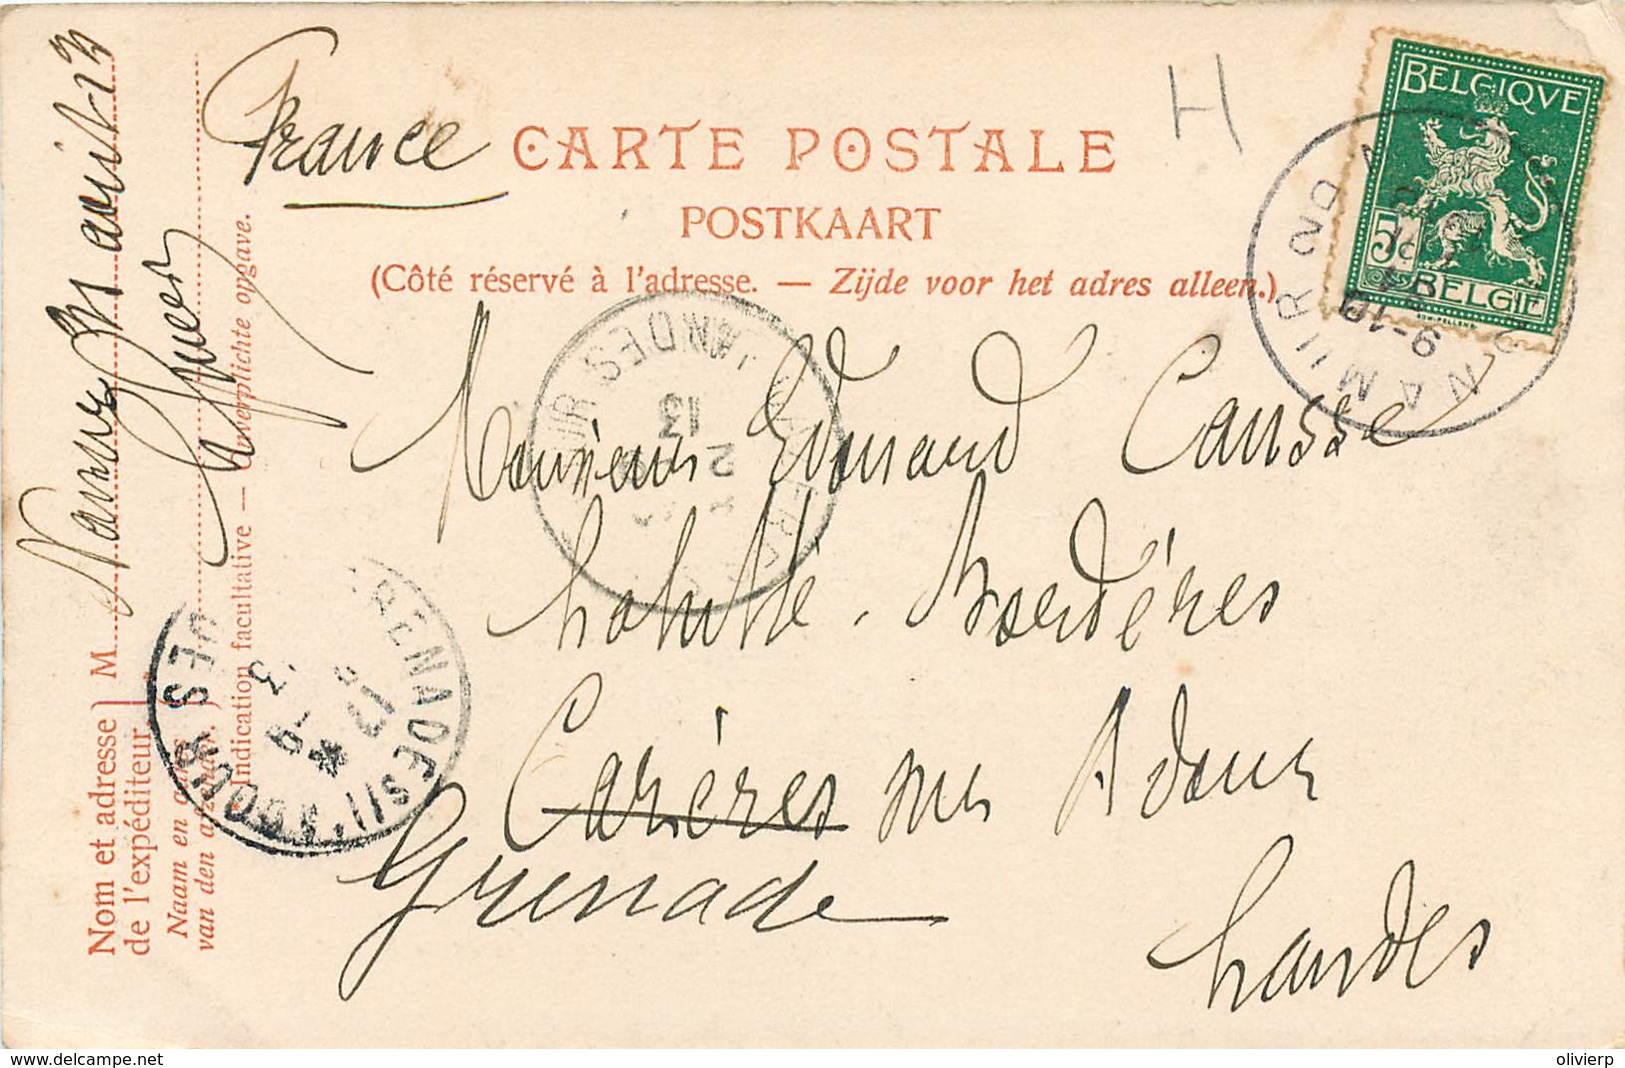 France
CARTE POSTALE
POSTKAART
(Côté réservé à l'adresse. — Zijde voor het adres alleen.)
H
BELGIQUE
5c
BELGIE
NAMUR
9-10
LANDES
13
Monsieur Edouard Causse
Bordères
Cazères sur Adour
Grenade
Landes
Namur
avril
Nom et adresse
de l'expéditeur
M
Naam en adres
van den afzender.
Indication facultative — Onverplichte opgave.
GRENADE S/L'ADOUR
LANDES
www.delcampe.net
olivierp